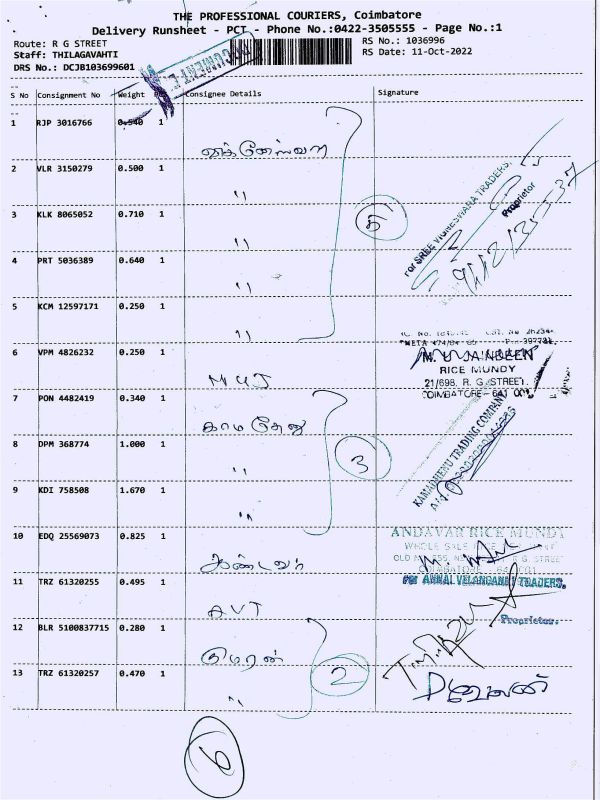 THE PROFESSIONAL COURIERS, Coimbatore
Delivery Runsheet - PCT - Phone No.:0422-3505555 - Page No.:1
Route: R G STREET
RS No.: 1036996
Staff: THILAGAVAHTI
RS Date: 11-Oct-2022
DRS No.: DCJB103699601
S No Consignment No Weight Consignee Details Signature
1 RJP 3016766 0.540 1
2 VLR 3150279 0.500 1 "
3 KLK 8065052 0.710 1 "
4 PRT 5036389 0.640 1 "
5 KCM 12597171 0.250 1 "
5
For SREE VIGNESWARA TRADERS,
Proprietor
6 VPM 4826232 0.250 1 MUJ
RICE MUNDY
21/698, R. G. STREET,
COIMBATORE - 641 001
7 PON 4482419 0.340 1 காமதேனு
8 DPM 368774 1.000 1 "
9 KDI 758508 1.670 1 "
3
KAMADHENU TRADING COMPANY
10 EDQ 25569073 0.825 1
ANDAVAR RICE MUNDY
WHOLE SALE RICE
R G STREET
COIMBATORE - 641 001
For ANNAI VELANGANNI TRADERS,
Proprietor.
11 TRZ 61320255 0.495 1 AVT
12 BLR 5100837715 0.280 1 குமரன்
13 TRZ 61320257 0.470 1 "
2
6